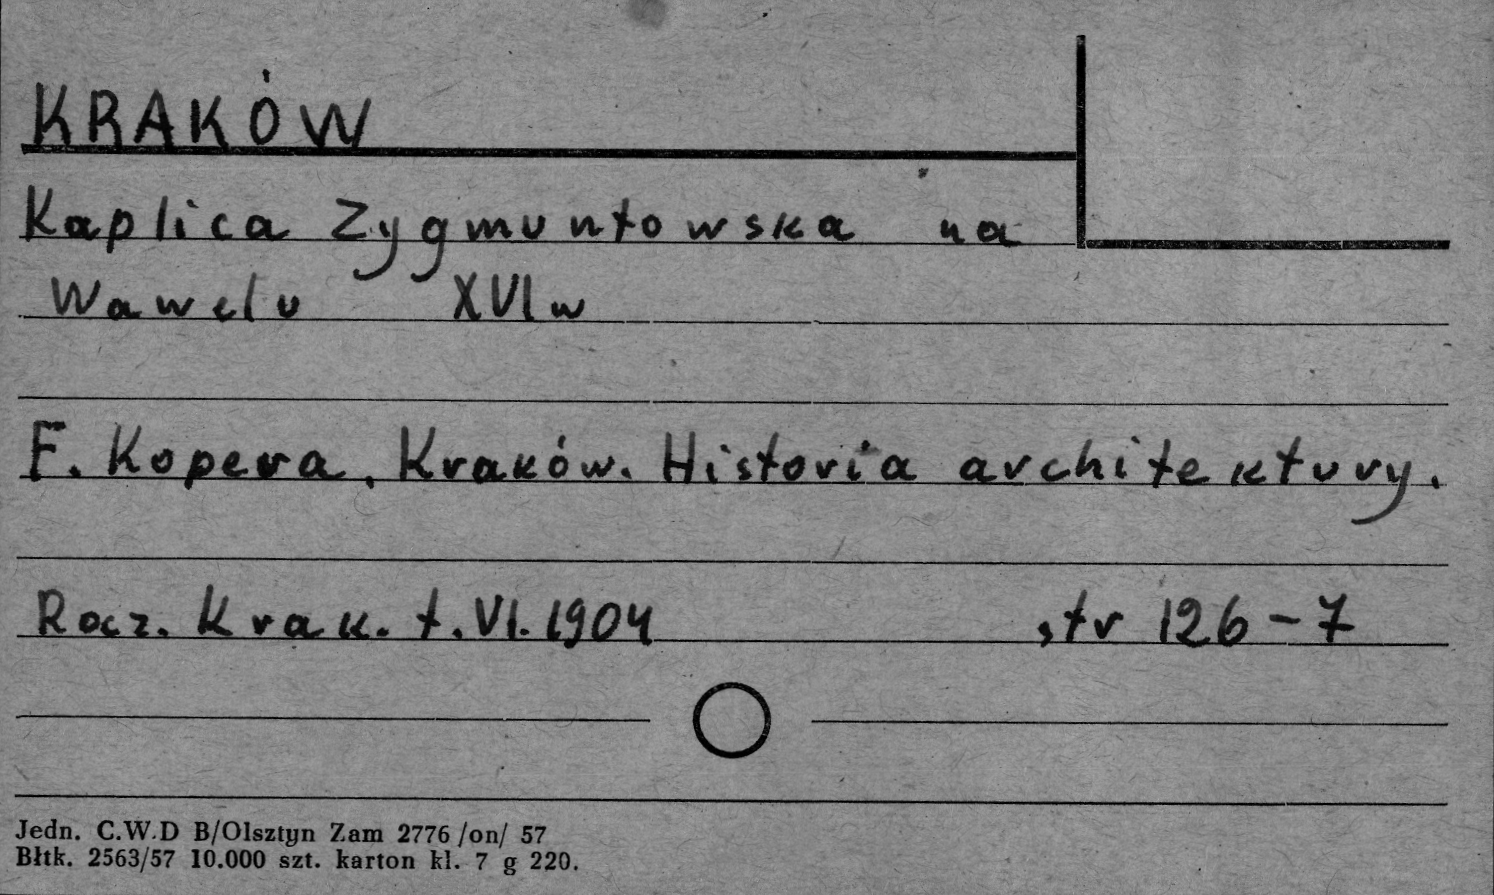 KRAKÓW
Kaplica Zygmuntowska na
Wawelu XVI w
F. Kopera, Kraków. Historia architektury.
Rocz. Krak. t. VI. 1904 , str 126-7
Jedn. C.W.D B/Olsztyn Zam 2776 /on/ 57
Błtk. 2563/57 10.000 szt. karton kl. 7 g 220.